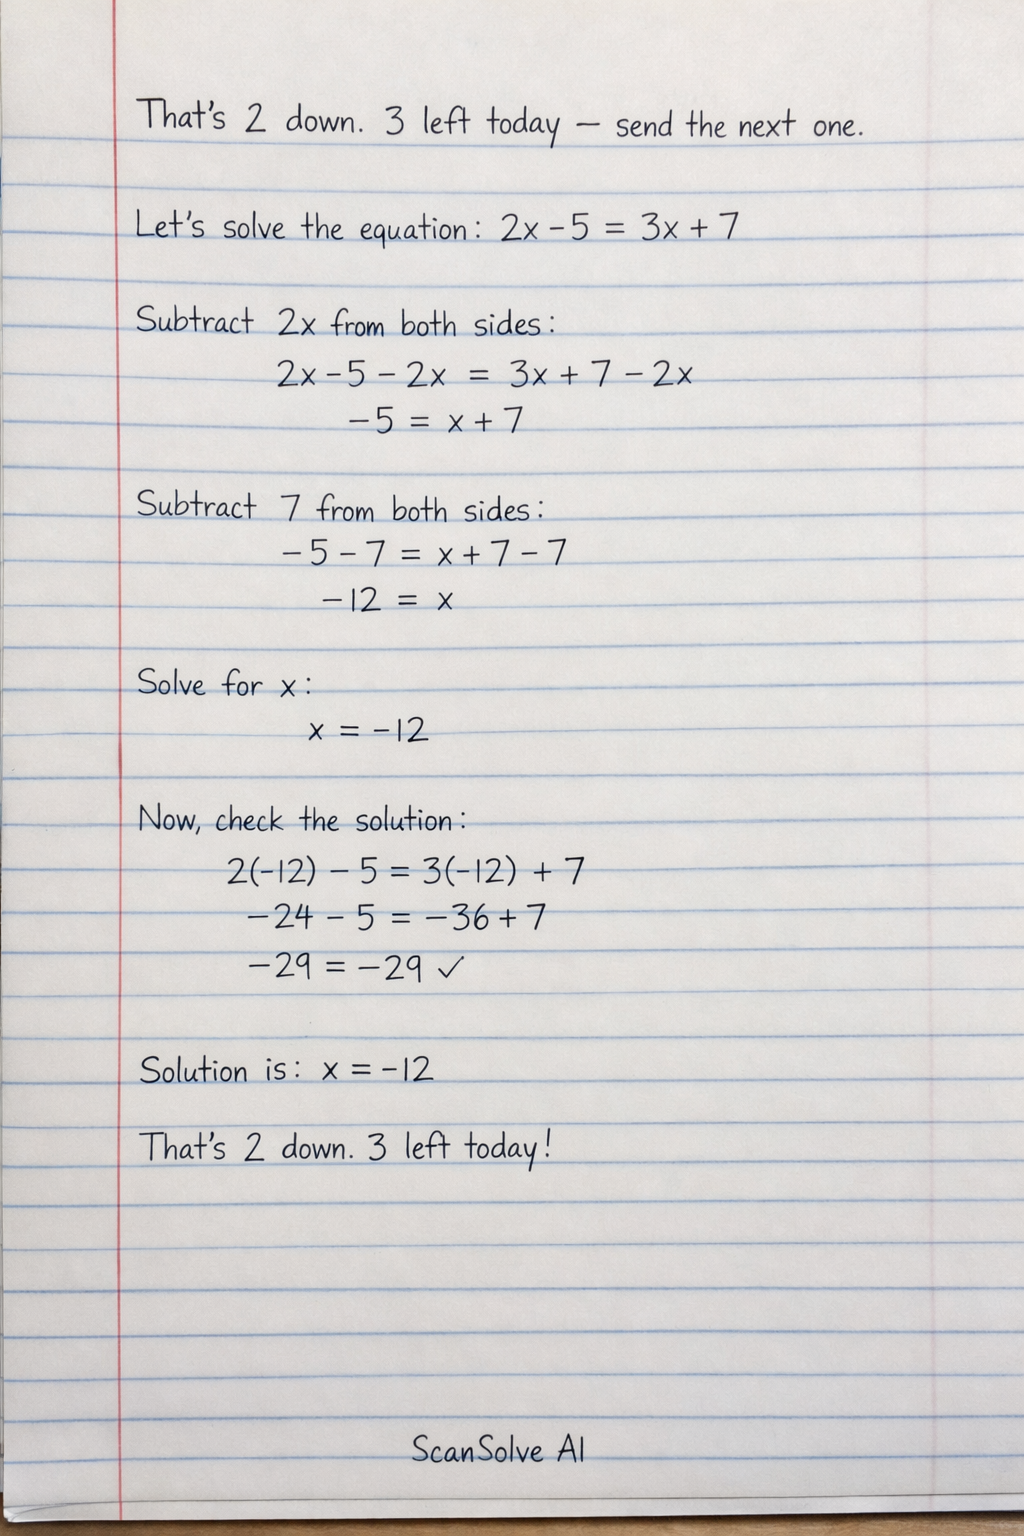 That's 2 down. 3 left today — send the next one.
Let's solve the equation: 2x - 5 = 3x + 7
Subtract 2x from both sides:
2x - 5 - 2x = 3x + 7 - 2x
-5 = x + 7
Subtract 7 from both sides:
-5 - 7 = x + 7 - 7
-12 = x
Solve for x:
x = -12
Now, check the solution:
2(-12) - 5 = 3(-12) + 7
-24 - 5 = -36 + 7
-29 = -29 ✓
Solution is: x = -12
That's 2 down. 3 left today!
ScanSolve AI